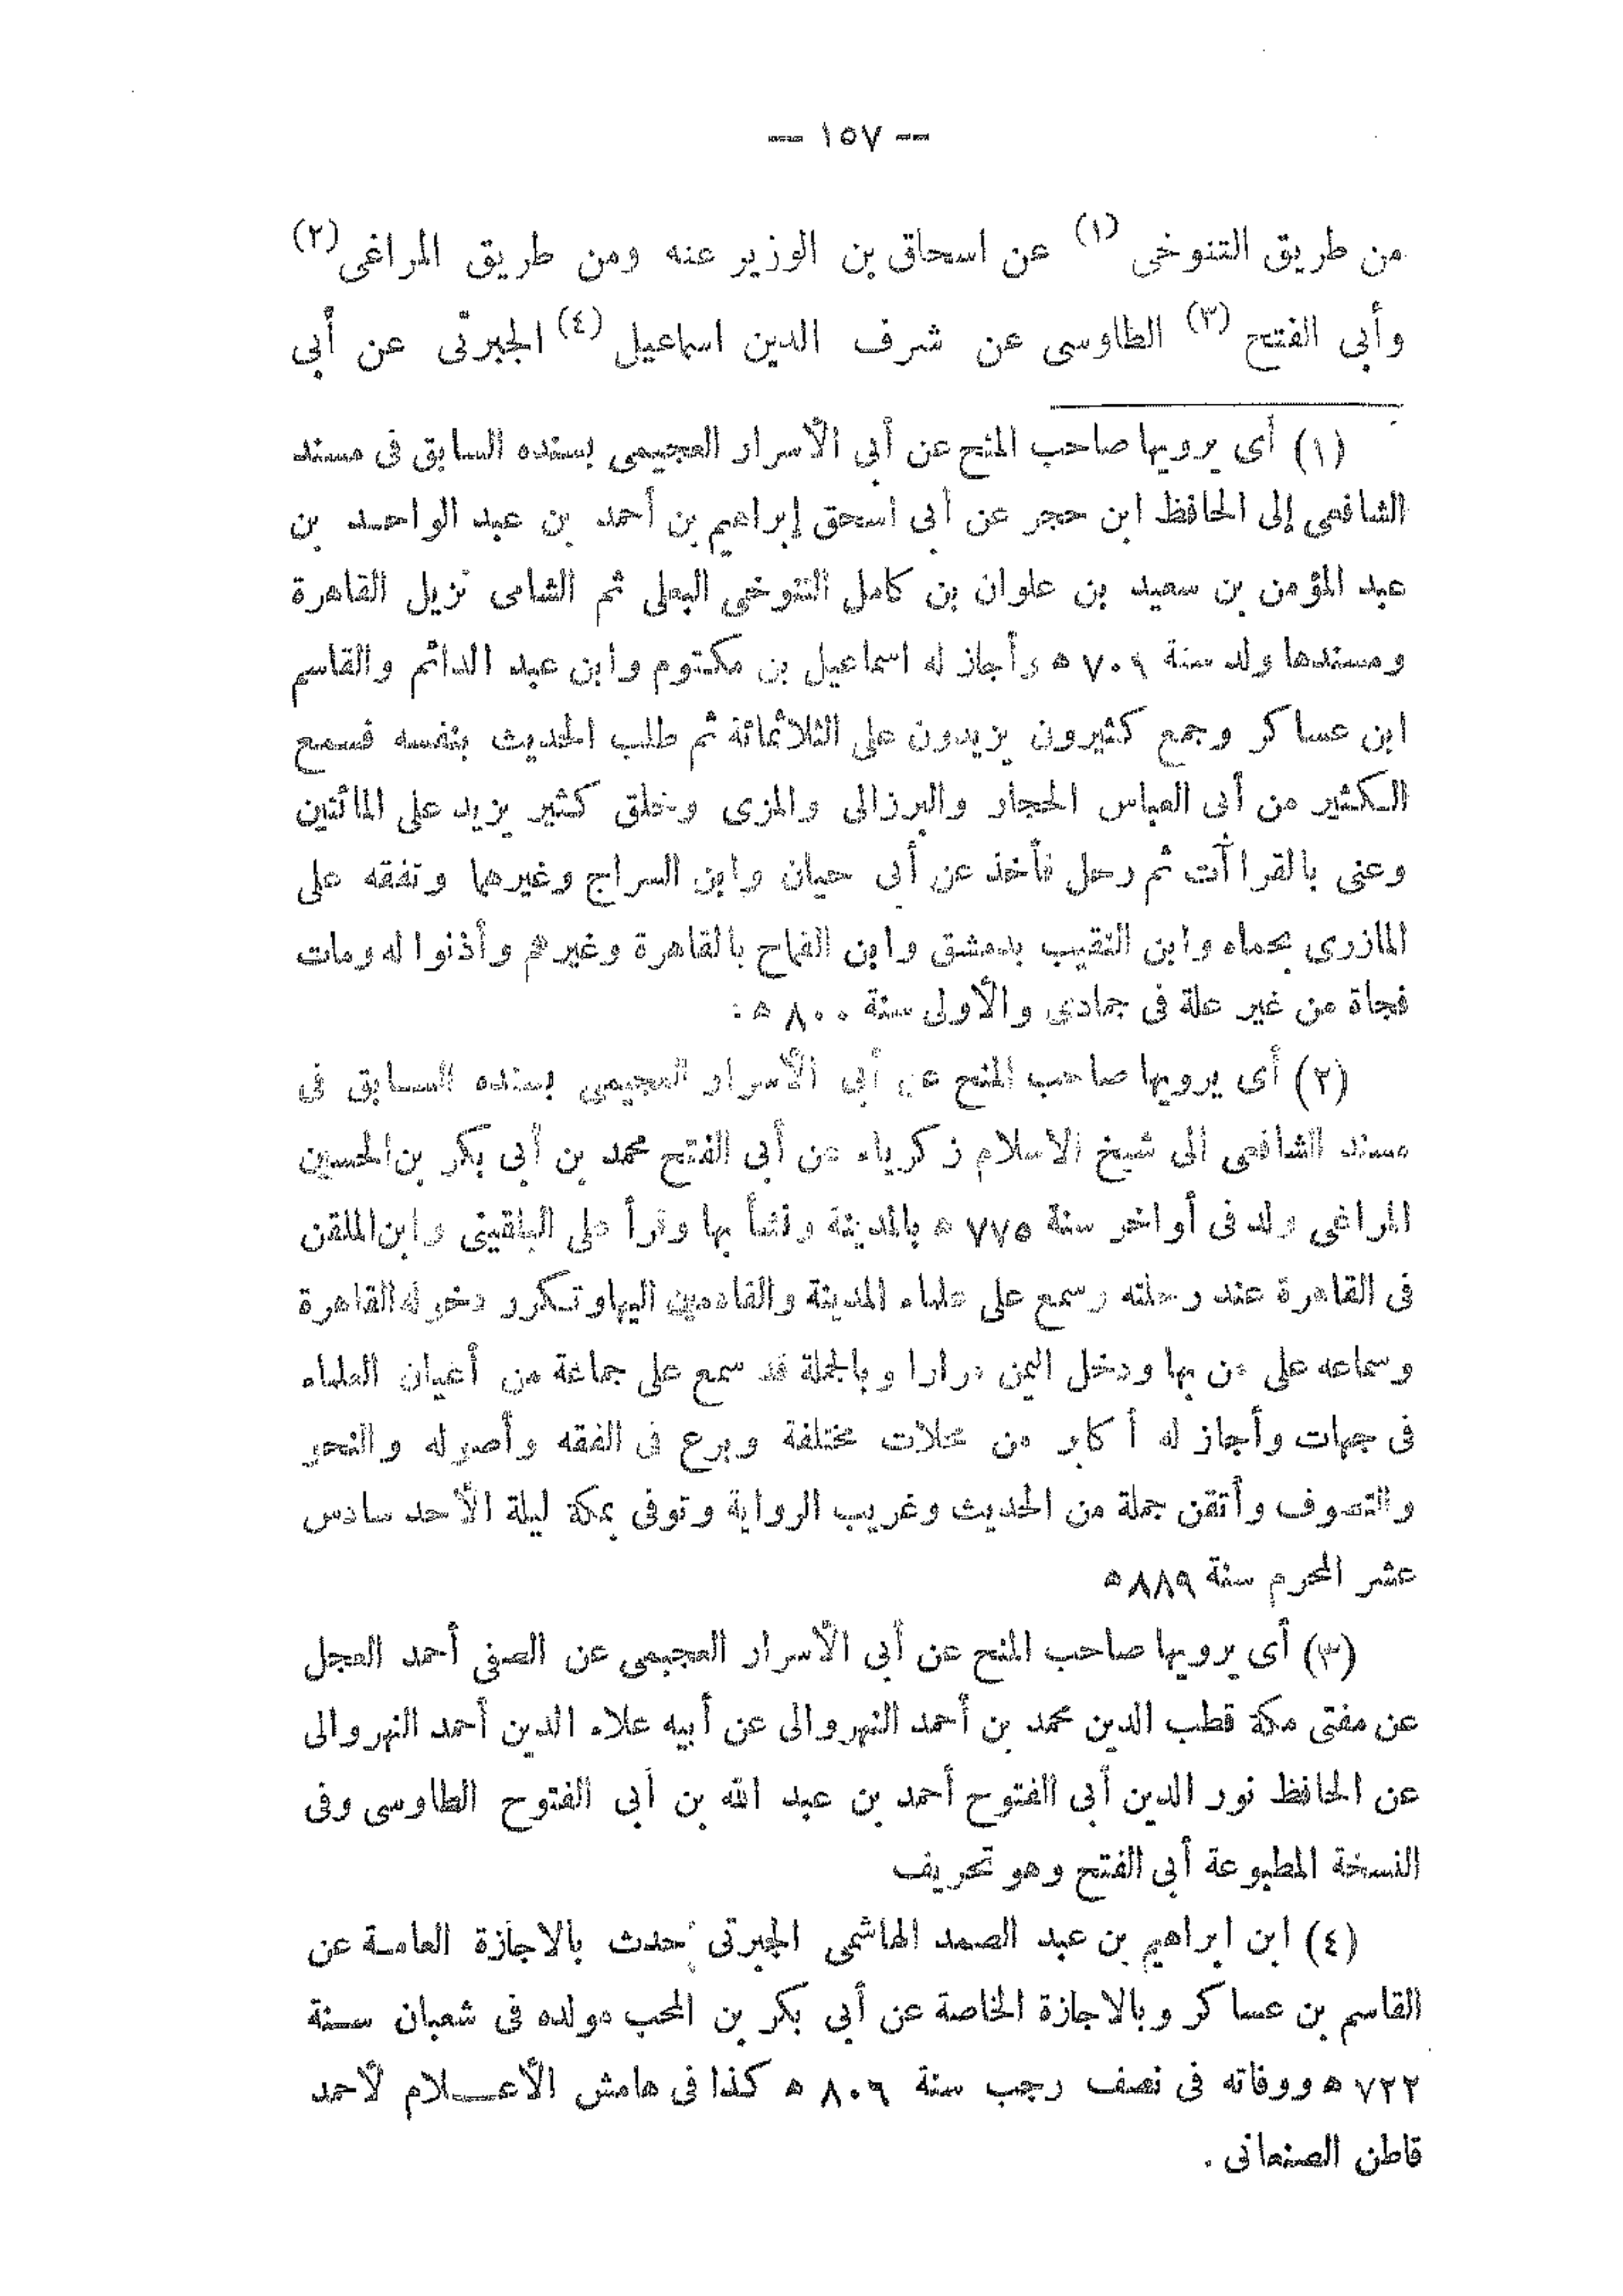 — ١٥٧ —
من طريق التنوخى (١) عن اسحاق بن الوزير عنه ومن طريق المراغى (٢)
وأبى الفتح (٣) الطاوسى عن شرف الدين اسماعيل (٤) الجبرتى عن أبى
(١) أى يرويها صاحب المنح عن أبى الأسرار العجيمى بسنده السابق فى مسند
الشافعى إلى الحافظ ابن حجر عن أبى اسحق إبراهيم بن أحمد بن عبد الواحد بن
عبد المؤمن بن سعيد بن علوان بن كامل التنوخى البعلى ثم الشامى نزيل القاهرة
ومسندها ولد سنة ٧٠٩ ه وأجاز له اسماعيل بن مكتوم وابن عبد الدائم والقاسم
ابن عساكر وجمع كثيرون يزيدون على الثلاثمائة ثم طلب الحديث بنفسه فسمع
الكثير من أبى العباس الحجار والبرزالى والمزى وخلق كثير يزيد على المائتين
وعنى بالقراآت ثم رحل فأخذ عن أبى حيان وابن السراج وغيرهما وتفقه على
المازرى بحماه وابن النقيب بدمشق وابن القماح بالقاهرة وغيرهم وأذنوا له ومات
فجاة من غير علة فى جمادى والأولى سنة ٨٠٠ ه :
(٢) أى يرويها صاحب المنح عن أبى الأسرار العجيمى بسنده السابق فى
مسند الشافعى الى شيخ الاسلام زكرياء عن أبى الفتح محمد بن أبى بكر بن الحسين
المراغى ولد فى أواخر سنة ٧٧٥ ه بالمدينة ونشأ بها وقرأ على البلقينى وابن الملقن
فى القاهرة عند رحلته وسمع على علماء المدينة والقادمين اليها وتكرر دخوله القاهرة
وسماعه على من بها ودخل اليمن مرارا وبالجملة قد سمع على جماعة من أعيان العلماء
فى جهات وأجاز له أكابر من محلات مختلفة وبرع فى الفقه وأصوله والنحو
والتصوف وأتقن جملة من الحديث وغريب الرواية وتوفى بمكة ليلة الأحد سادس
عشر المحرم سنة ٨٨٩ ه
(٣) أى يرويها صاحب المنح عن أبى الأسرار العجيمى عن الصفى أحمد العجل
عن مفتى مكة قطب الدين محمد بن أحمد النهروالى عن أبيه علاء الدين أحمد النهروالى
عن الحافظ نور الدين أبى الفتوح أحمد بن عبد الله بن أبى الفتوح الطاوسى وفى
النسخة المطبوعة أبى الفتح وهو تحريف
(٤) ابن ابراهيم بن عبد الصمد الهاشمى الجبرتى حدث بالاجازة العامة عن
القاسم بن عساكر وبالاجازة الخاصة عن أبى بكر بن المحب مولده فى شعبان سنة
٧٢٢ ه ووفاته فى نصف رجب سنة ٨٠٦ ه كذا فى هامش الأعلام لأحمد
قاطن الصنعانى .